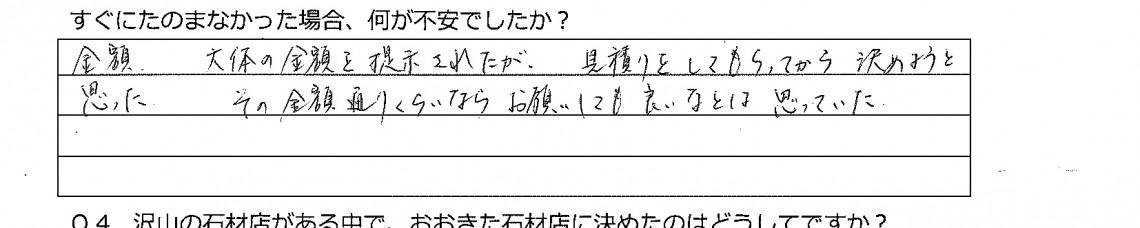 すぐにたのまなかった場合、何が不安でしたか？
金額． 大体の金額を提示されたが、 見積りをしてもらってから 決めようと
思った． その金額通りくらいなら お願いしても良いなとは 思っていた．
Q４．沢山の石材店がある中で、おおきた石材店に決めたのはどうしてですか？